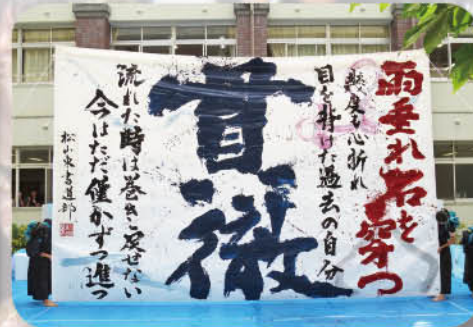 雨垂れ石を穿つ
幾度も心折れ
目を背けた過去の自分
貫徹
流れた時は巻き戻せない
今はただ僅かずつ進つ
松山東書道部